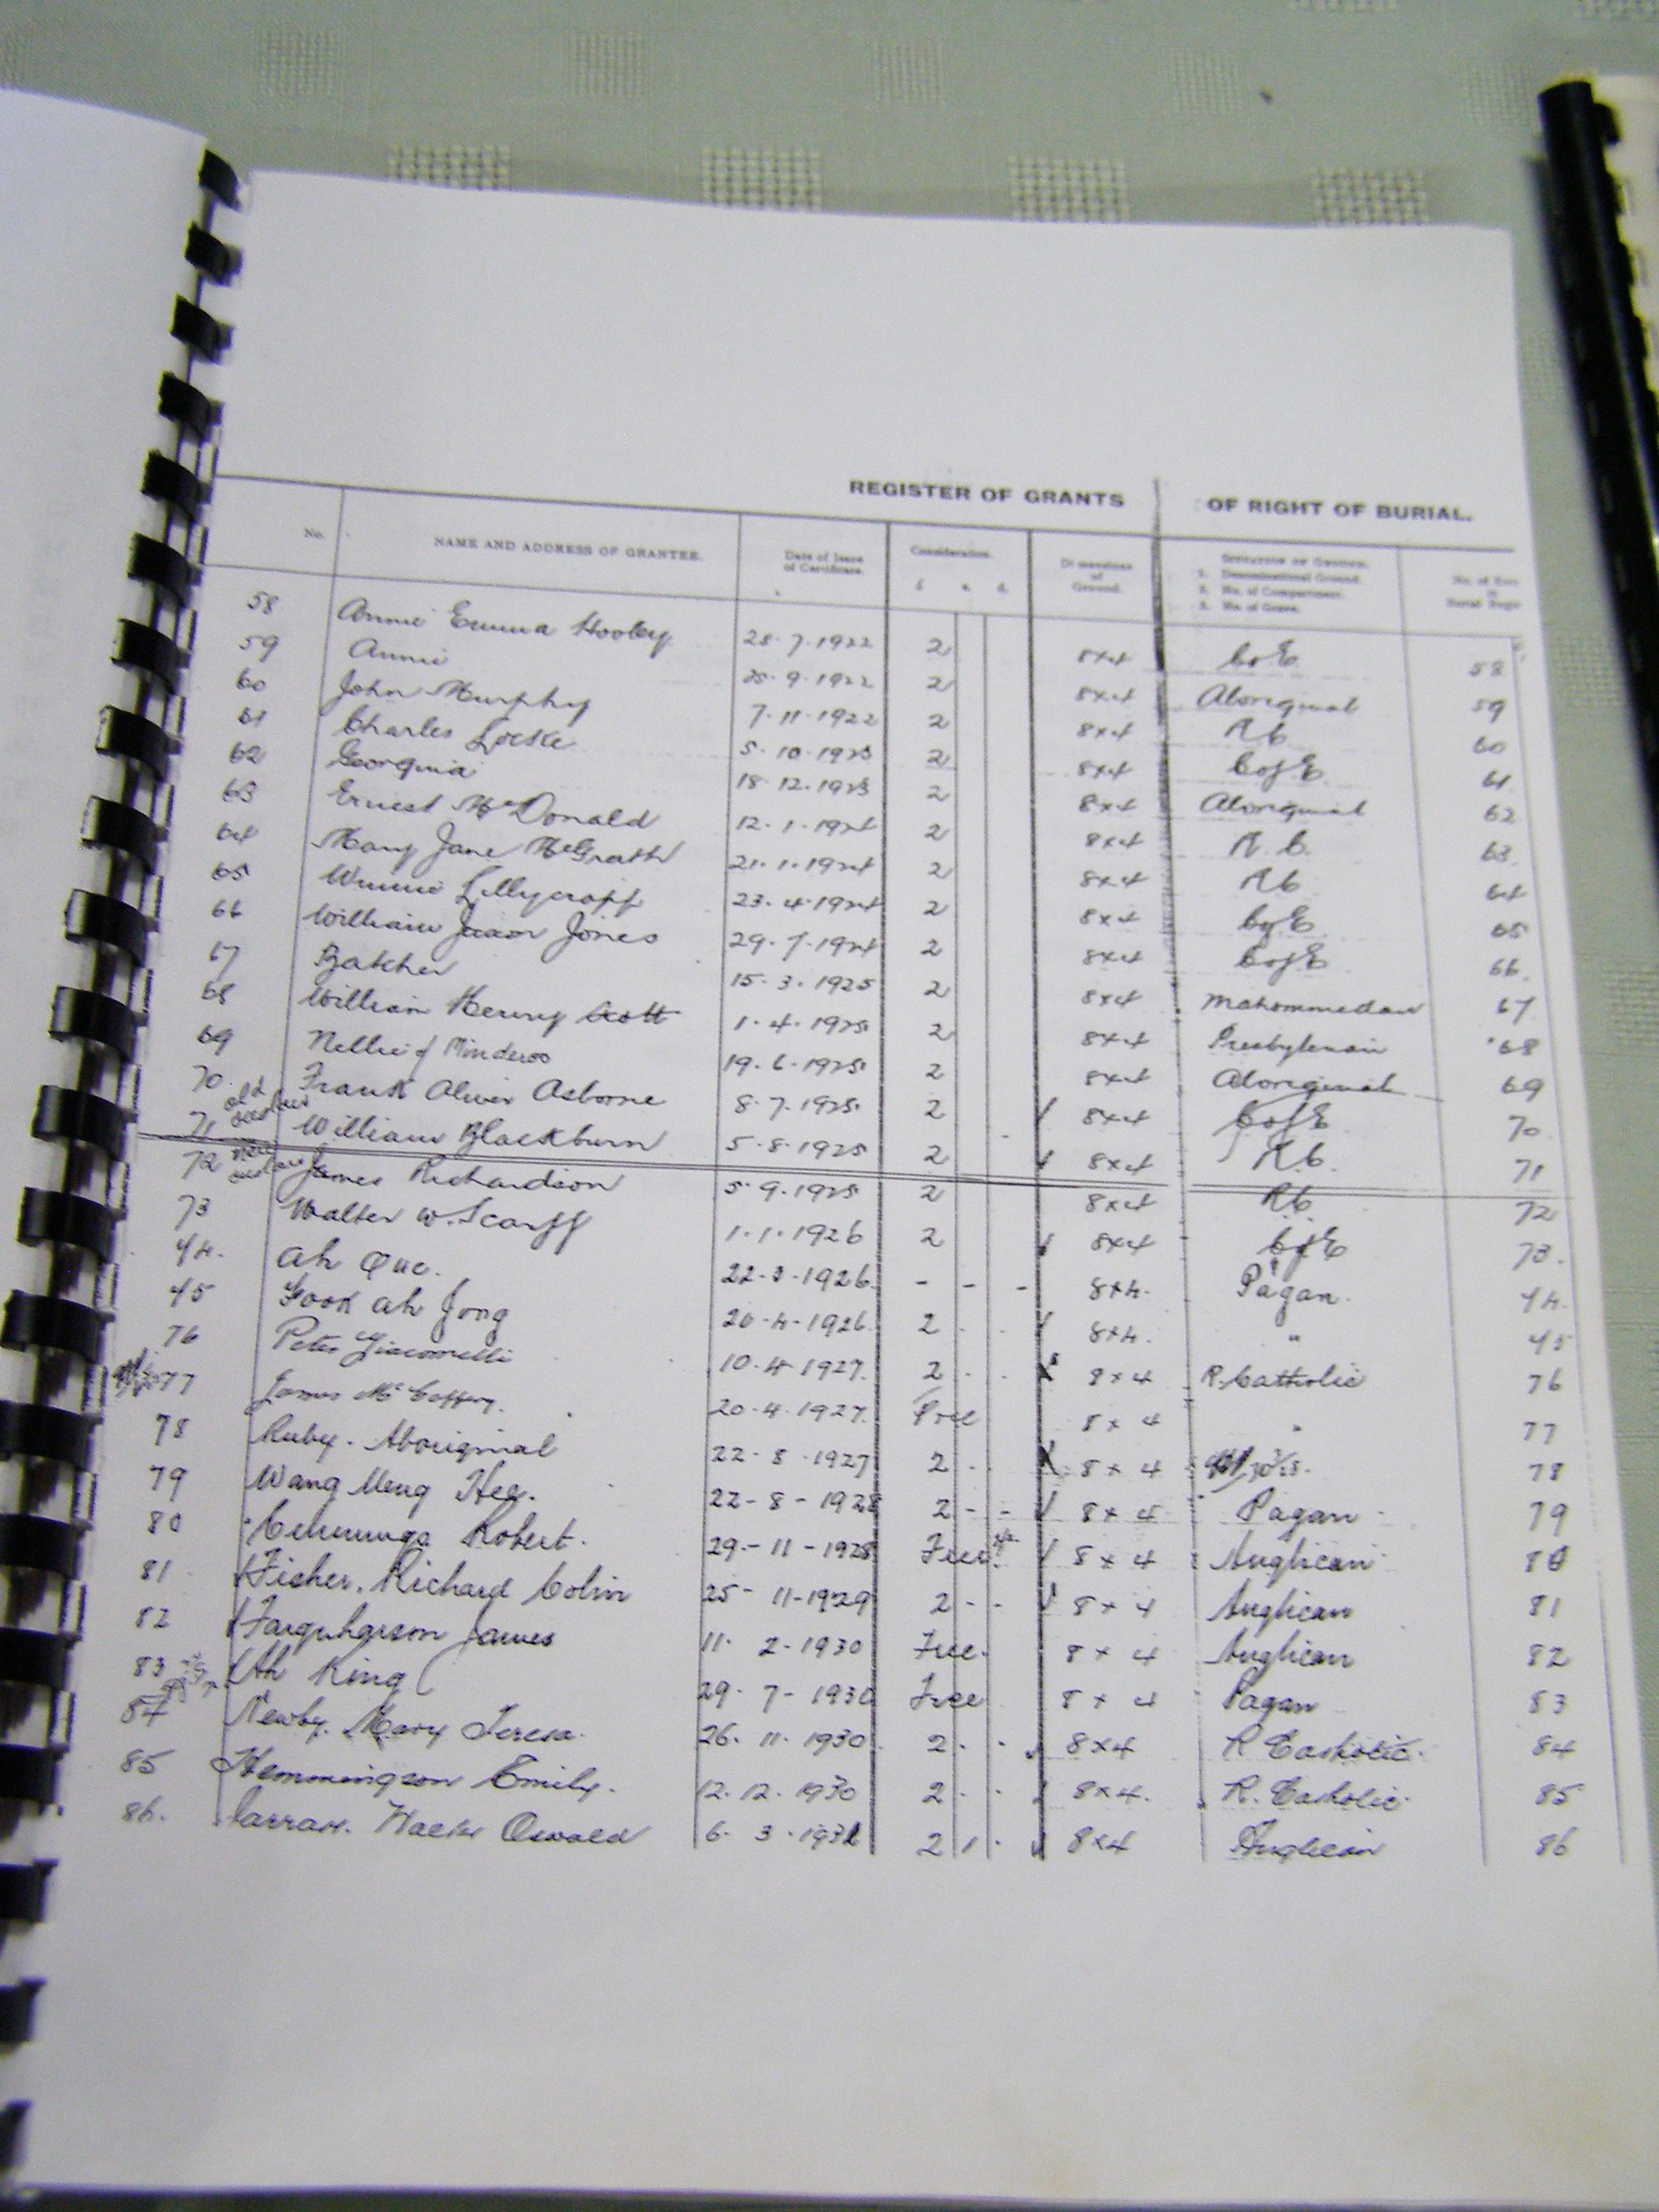 REGISTER OF GRANTS OF RIGHT OF BURIAL.
No. NAME AND ADDRESS OF GRANTEE. Date of Issue of Certificate. Consideration. £ s. d. Dimensions of Ground. SITUATION OF GROUND. 1. Denominational Ground. 2. No. of Compartment. 3. No. of Grave. No. of in Burial
58 Annie Emma Hooley 28·7·1922 2 8x4 C of E 58
59 Annie 9·1922 2 8x4 Aboriginal 59
60 John Murphy 7·11·1922 2 8x4 RC 60
61 Charles 5·10·1923 2 8x4 C of E 61
62 Georgina 18·12·1923 2 8x4 Aboriginal 62
63 Ernest McDonald 12·1·1924 2 8x4 R.C. 63
64 Mary Jane McGrath 21·1·1924 2 8x4 RC 64
65 Winnie Lillycropp 23·4·1924 2 8x4 C of E 65
66 William Jones 29·7·1924 2 8x4 C of E 66
67 Batcher 15·3·1925 2 8x4 Mahommedan 67
68 William Henry Scott 1·4·1925 2 8x4 Presbyterian 68
69 Nellie of Minderoo 19·6·1925 2 8x4 Aboriginal 69
70 Frank Oliver Osborne 8·7·1925 2 8x4 C of E 70
71 old William Blackburn 5·8·1925 2 8x4 R.C. 71
72 New James Richardson 5·9·1925 2 8x4 RC 72
73 Walter W. Scarff 1·1·1926 2 8x4 C of E 73
74. Ah Que. 22-3-1926 - - - 8x4. Pagan. 74.
75 Fook Ah Jong 20-4-1926 2 8x4. " 75
76 Peter Giacomelli 10·4·1927. 2 8x4 R. Catholic 76
77 James McCaffery. 20·4·1927. Free 8x4 " 77
78 Ruby. Aboriginal 22-8·1927 2 8x4 78
79 Wang Meng Hee. 22-8-1928 2 - - 8x4 Pagan 79
80 Robert. 29-11-1928 Free. 8x4 Anglican 80
81 Fisher. Richard Colin 25-11-1929 2 - - 8x4 Anglican 81
82 Farquharson James 11· 2-1930 Free. 8x4 Anglican 82
83 Ah King 29-7-1930 Free 8x4 Pagan 83
84 Newby. Mary Teresa. 26·11·1930 2 8x4 R Catholic. 84
85 Hemmingson Emily. 12·12·1930 2 8x4. R. Catholic 85
86. Oswald 6·3·1931 2 1 8x4 Anglican 86